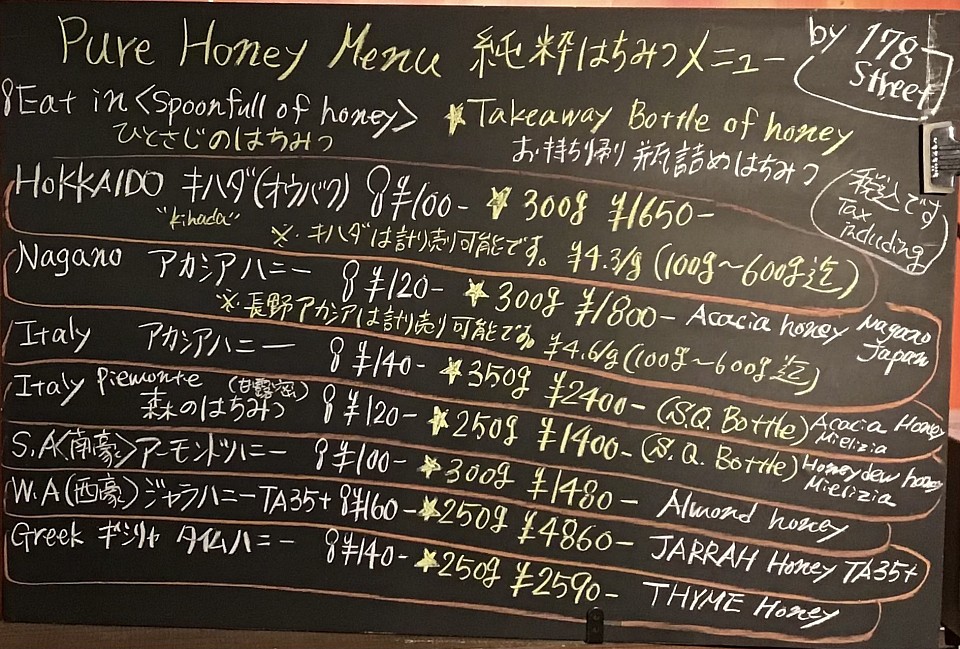 Pure Honey Menu 純粋はちみつメニュー
by 178 Street
Eat in <Spoonfull of honey> ★Takeaway Bottle of honey
ひとさじのはちみつ お持ち帰り 瓶詰めはちみつ
税込です
Tax including
HOKKAIDO キハダ(オウバク) ¥100- ★ 300g ¥1650-
"kihada" ※・キハダは計り売り可能です。 ¥4.3/g (100g～600g迄)
Nagano アカシアハニー ¥120- ★ 300g ¥1800- Acacia honey Nagano Japan
※・長野アカシアは計り売り可能です。 ¥4.6/g (100g～600g迄)
Italy アカシアハニー ¥140- ★350g ¥2400- (S.Q. Bottle) Acacia Honey Mielizia
Italy Piemonte (甘露蜜)
森のはちみつ ¥120- ★250g ¥1400- (S.Q. Bottle) Honeydew honey Mielizia
S.A<南豪>アーモンドハニー ¥100- ★300g ¥1480- Almond honey
W.A(西豪)ジャラハニーTA35+ ¥160- ★250g ¥4860- JARRAH Honey TA35+
Greek ギリシャ タイムハニー ¥140- ★250g ¥2590- THYME Honey